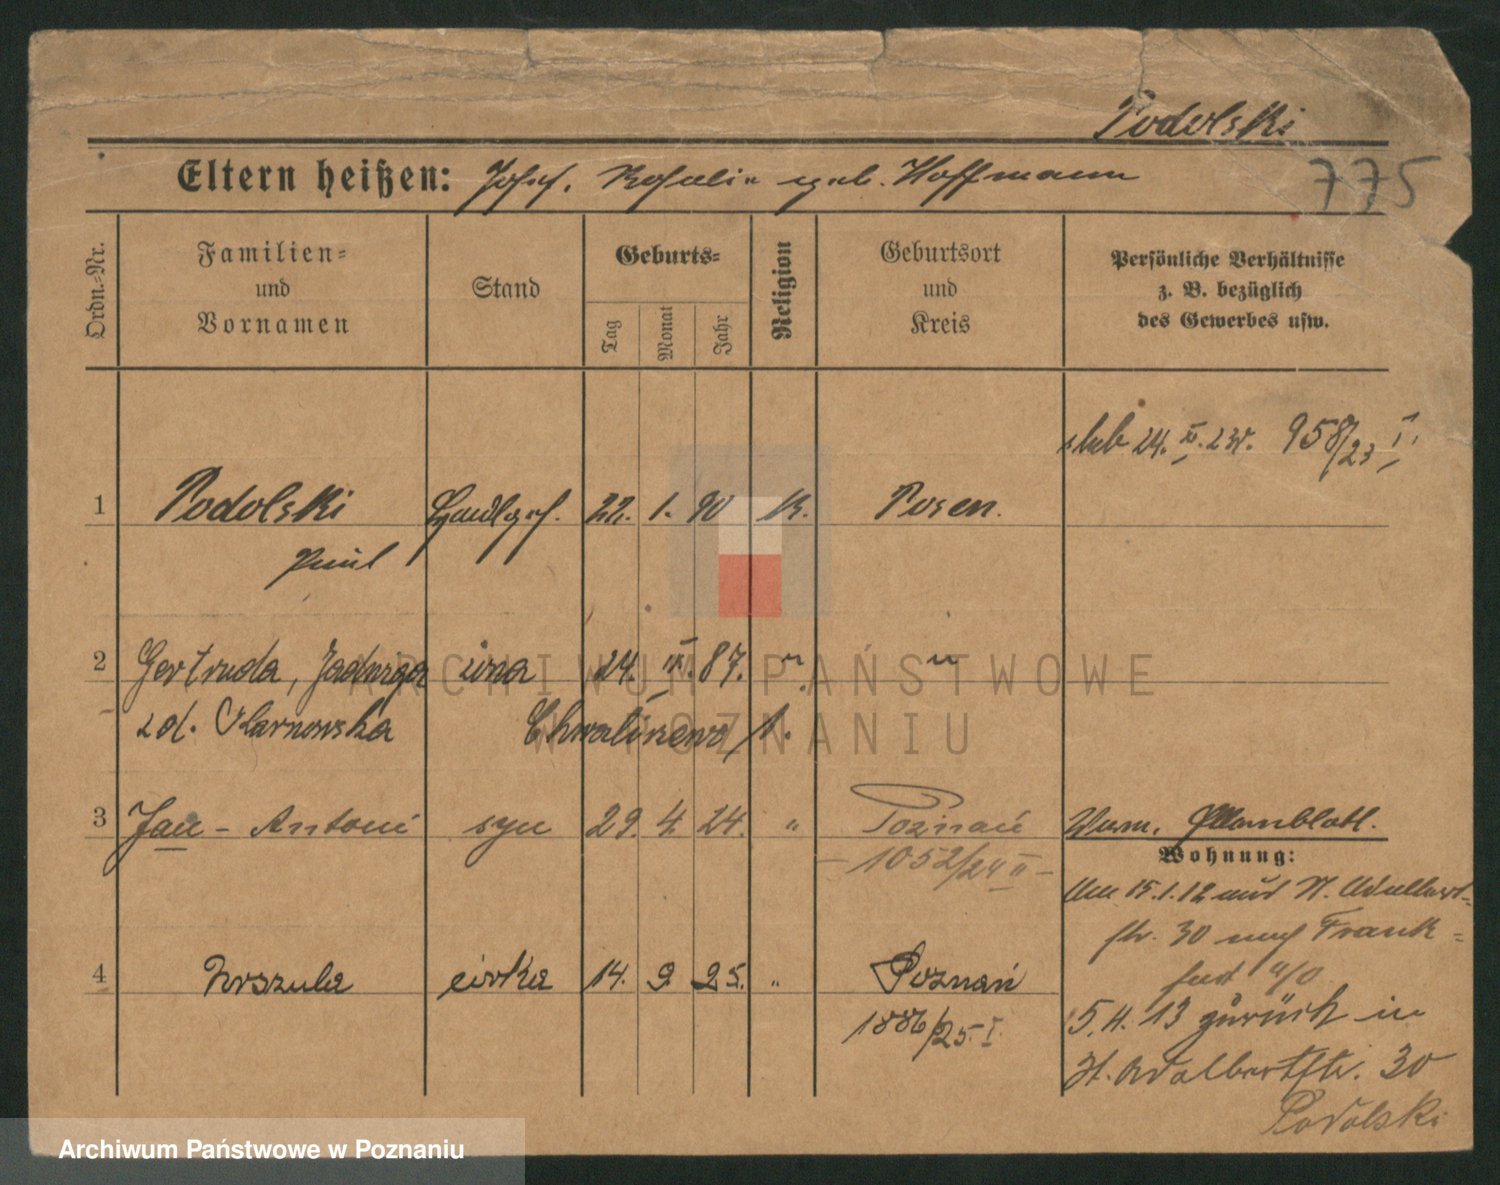 Podolski
Eltern heißen: Josef, Rosalie geb. Hoffmann
775
Ordn.-Nr.
Familien-
und
Vornamen
Stand
Geburts-
Tag
Monat
Jahr
Religion
Geburtsort
und
Kreis
Persönliche Verhältnisse
z. B. bezüglich
des Gewerbes usw.
ślub 24. XI. 23r. 958/23 I.
1 Podolski Handlgsgh. 22. 1. 90 K. Posen.
Paul
2 Gertruda, Jadwiga żona 24. III. 87. " "
zd. Olarnowska Chwaliszewo 1.
3 Jan - Antoni syn 29. 4. 24. " Poznań
- 1052/24 II -
4 Urszula córka 14. 9. 25. " Poznań
1886/25. I.
Wohnung:
Am 15.1.12 aus St. Adalbert-
str. 30 nach Frank-
furt a/O
5.4.13 zurück in
St. Adalbertstr. 30
Podolski
ARCHIWUM PAŃSTWOWE
W POZNANIU
Archiwum Państwowe w Poznaniu